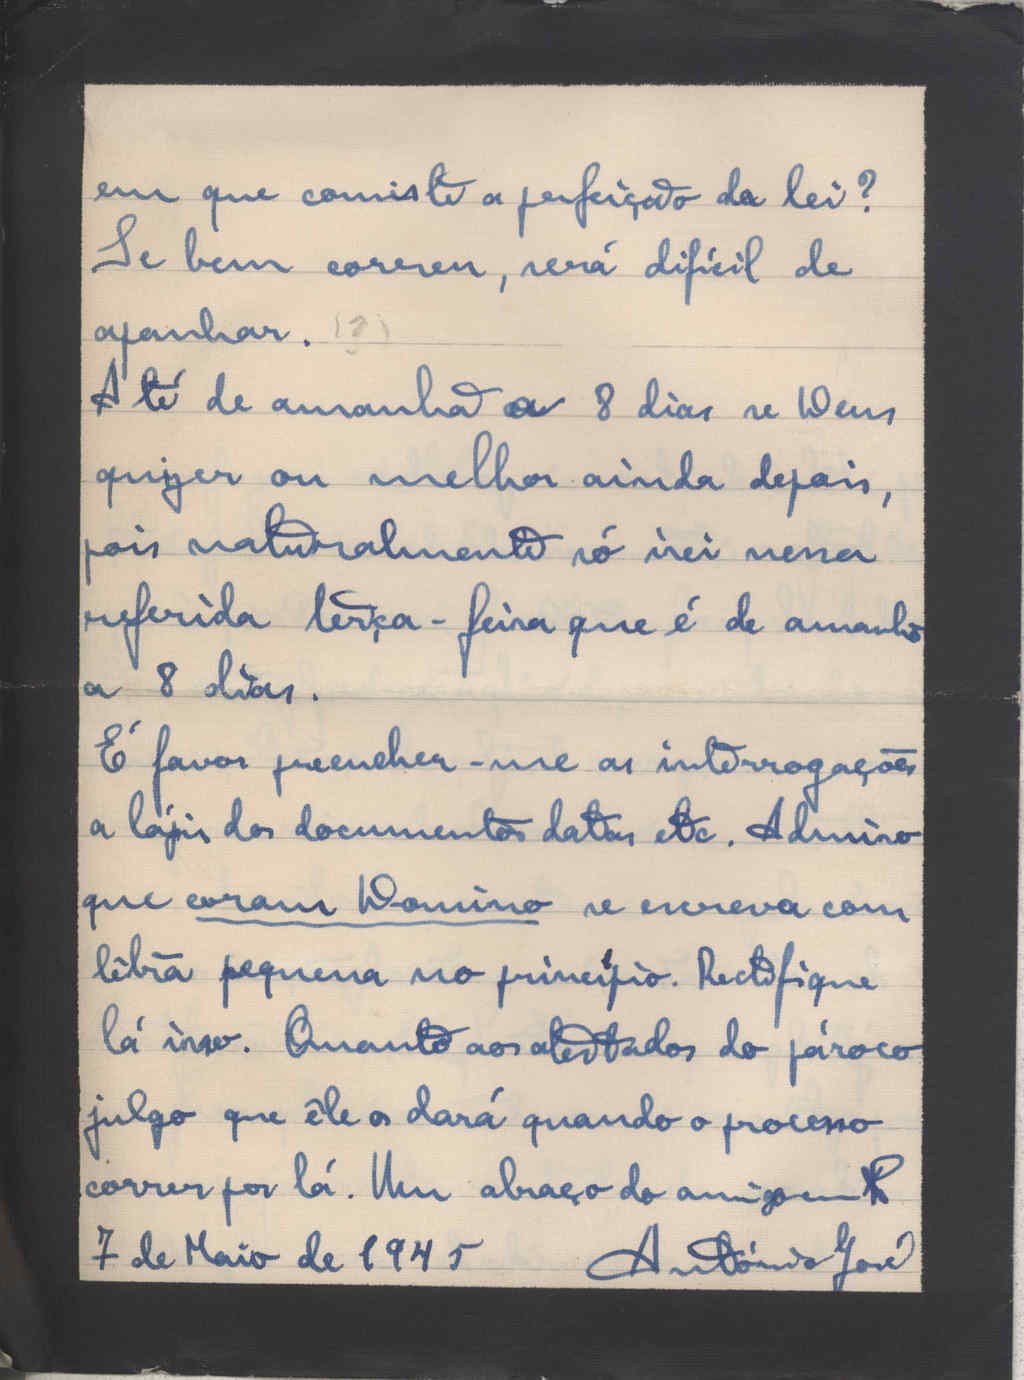 em que consiste a perfeição da lei?
Se bem correu, será difícil de
apanhar. (?)
Até de amanhã a 8 dias se Deus
quizer ou melhor ainda depois,
pois naturalmente só irei nessa
referida terça-feira que é de amanhã
a 8 dias.
É favor preencher-me as interrogações
a lápis dos documentos datas etc. Admiro
que coram Domino se escreva com
letra pequena no princípio. Rectifique
lá isso. Quanto aos atestados do pároco
julgo que êle os dará quando o processo
correr por lá. Um abraço do amigo em
7 de Maio de 1945 António José